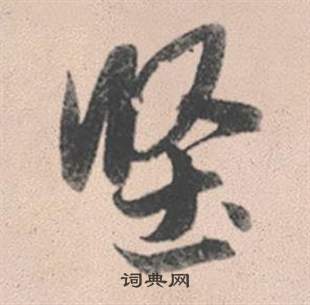 坚
词典网